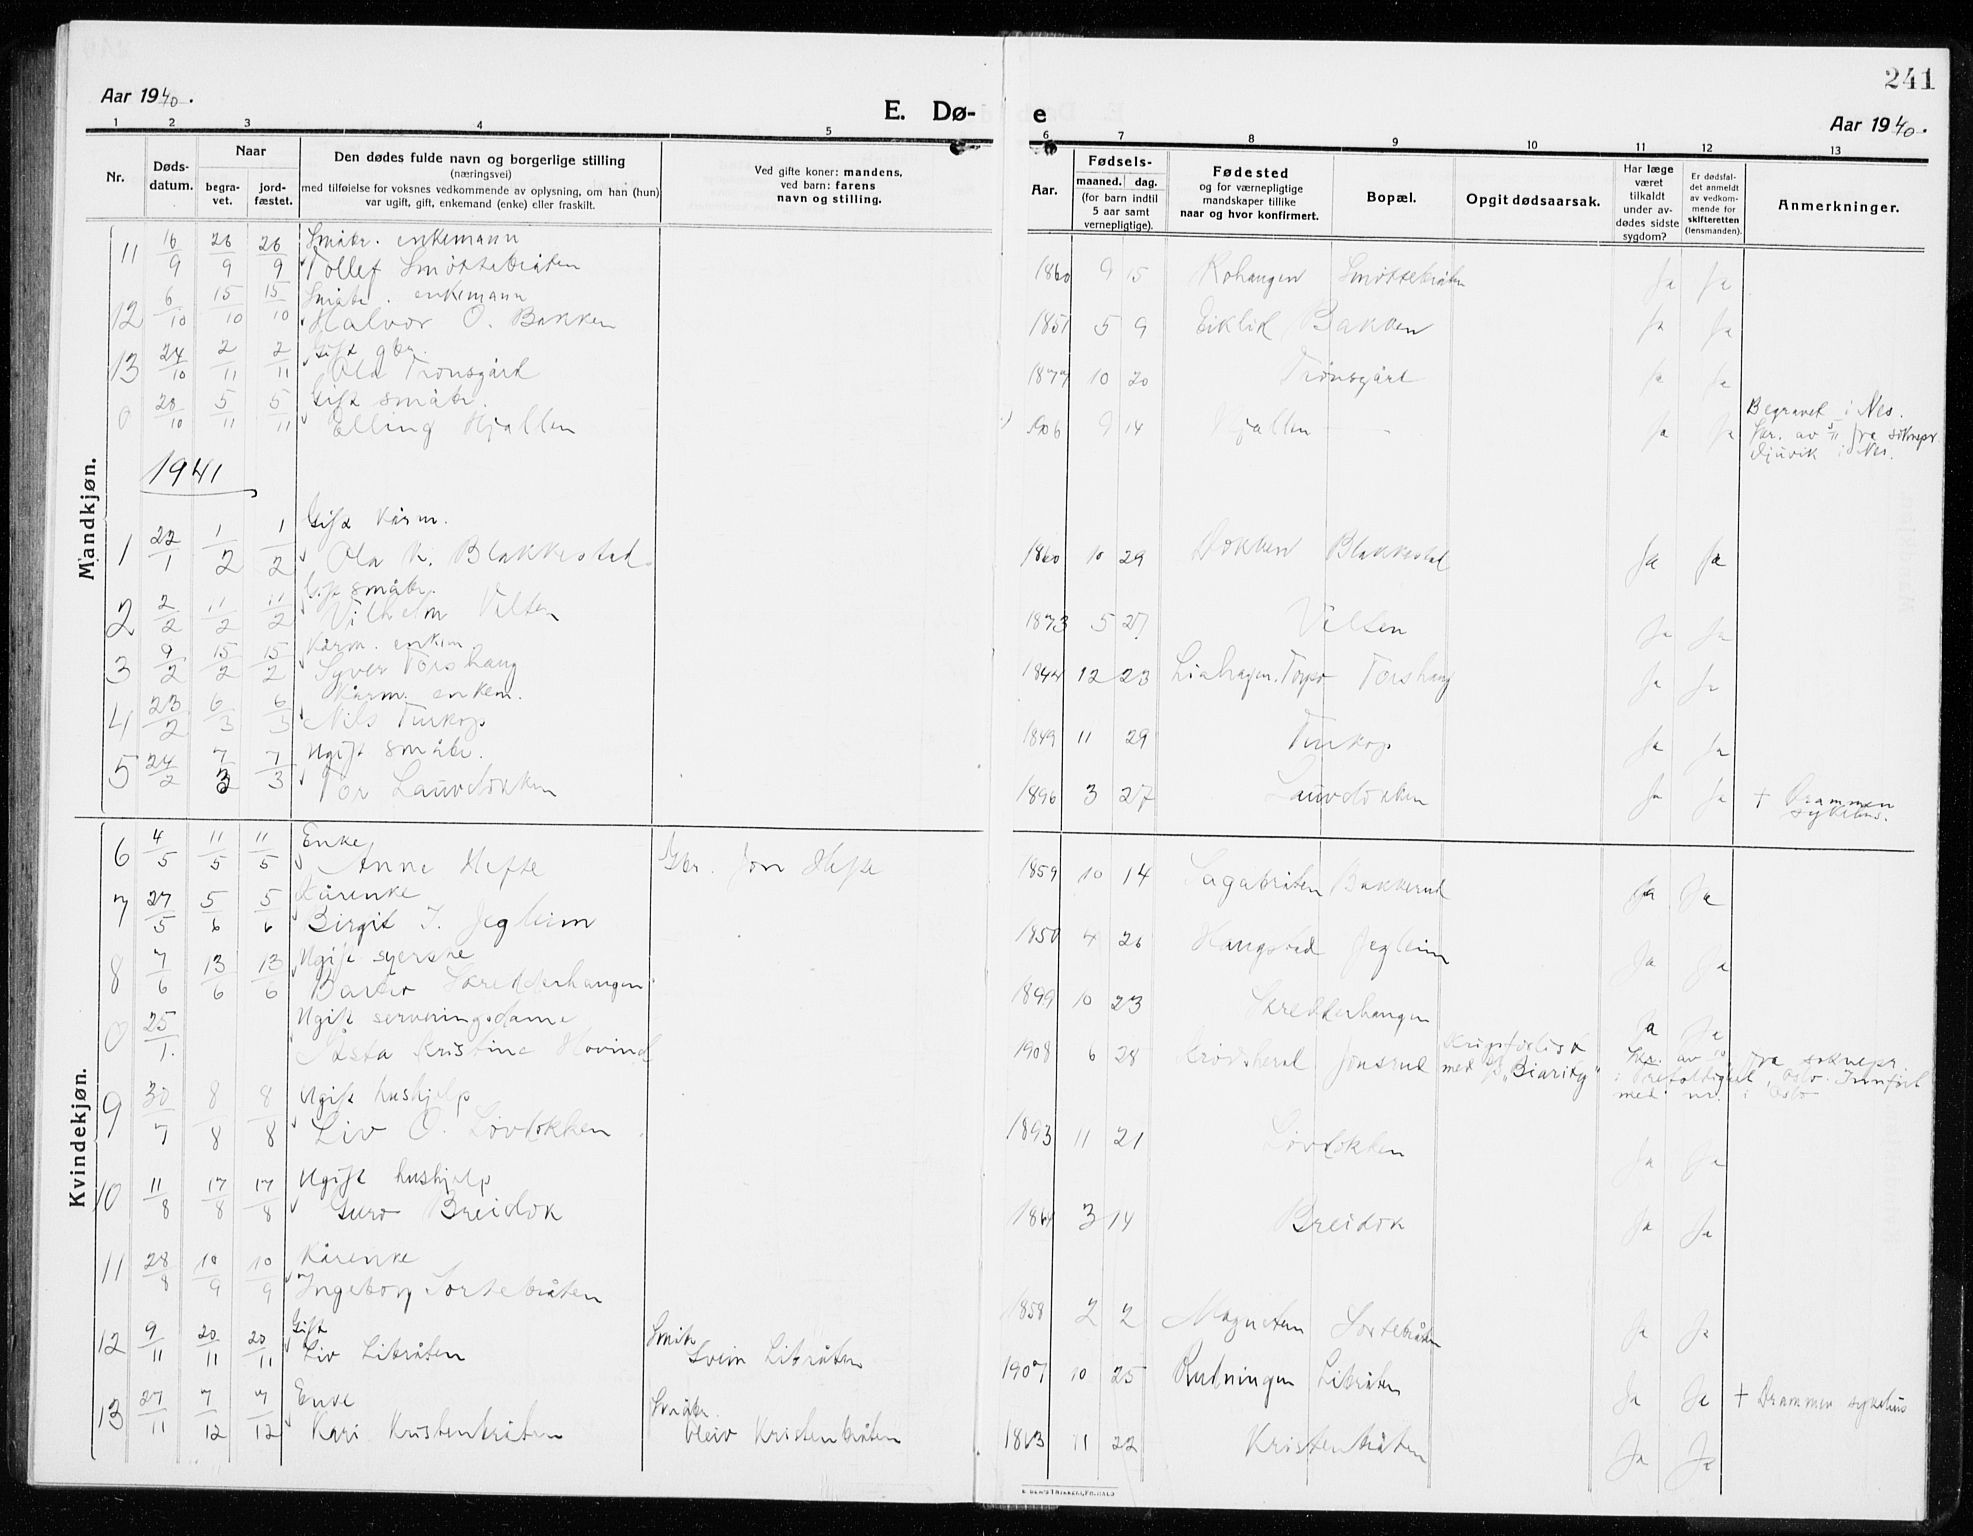 241
Aar 1940.
E. Dø-
e
Aar 1940.
1 2 3 4 5 6 7 8 9 10 11 12 13
Nr.
Døds-
datum.
Naar
begra-
vet.
jord-
fæstet.
Den dødes fulde navn og borgerlige stilling
(næringsvei)
med tilføielse for voksnes vedkommende av oplysning, om han (hun)
var ugift, gift, enkemand (enke) eller fraskilt.
Ved gifte koner: mandens,
ved barn: farens
navn og stilling.
Aar.
Fødsels-
maaned. dag.
(for barn indtil
5 aar samt
vernepligtige).
Fødested
og for værnepligtige
mandskaper tillike
naar og hvor konfirmert.
Bopæl.
Opgit dødsaarsak.
Har læge
været
tilkaldt
under av-
dødes sidste
sygdom?
Er dødsfal-
det anmeldt
av vedkom-
mende for
skifteretten
(lensmanden).
Anmerkninger.
Mandkjøn.
Småbr. enkemann
11 16/9 26/9 26/9 Tollef Smøttebråten 1860 9 15 Rohaugen Smøttebråten Ja Ja
Småbr. enkemann
12 6/10 15/10 15/10 Halvor O. Bakken 1851 5 9 Eiklid Bakken Ja Ja
Gift gbr.
13 24/10 2/11 2/11 Ola Trønsgård 1877 10 20 Trønsgård Ja Ja
Gift småbr.
0 28/10 5/11 5/11 Elling Hjallen 1906 9 14 Hjallen — Ja Ja Begravet i Nes.
Skr. av 5/11 fra soknepr.
Djuvik i Nes.
1941
Gift kårm.
1 22/1 1/2 1/2 Ola K. Blakkestad 1860 10 29 Dokken Blakkestad Ja Ja
Gift småbr.
2 2/2 11/2 11/2 Vilhelm Velten 1873 5 27 Velten Ja Ja
Kårm. enkem.
3 9/2 15/2 15/2 Syver Torshaug 1844 12 23 Liahagen. Torpo Torshaug Ja Ja
Kårm. enkem.
4 23/2 6/3 6/3 Nils Turkop 1849 11 29 Turkop Ja Ja
Ugift småbr.
5 24/2 7/3 7/3 Tor Lauvdokken 1896 3 27 Lauvdokken Ja Ja + Drammen
sykehus.
Kvindekjøn.
Enke
6 4/5 11/5 11/5 Anne Hefte Gbr. Jon Hefte 1859 10 14 Sagabråten Bakkerud Ja Ja
Kårenke
7 27/5 5/6 5/6 Birgit T. Jegleim 1850 4 26 Haugstad Jegleim Ja Ja
Ugift syerske
8 7/6 13/6 13/6 Barbro Skredderhaugen 1899 10 23 Skredderhaugen Ja Ja
Ugift serveringsdame
0 25/1. Åsta Kristine Hovind 1908 6 28 Krødsherad Jonsrud Krigsforlist
med D/S „Biaritz“ Ja Ja
Skr. av fra soknepr.
i Trefoldighet, Oslo. Innført
med nr. i Oslo
Ugift hushjelp
9 30/7 8/8 8/8 Liv O. Løvdokken 1893 11 21 Løvdokken Ja Ja
Ugift hushjelp
10 11/8 17/8 17/8 Guro Breidok 1864 3 14 Breidok Ja Ja
Kårenke
11 28/8 10/9 10/9 Ingeborg Sortebråten 1858 2 2 Magneten Sortebråten Ja Ja
Gift
12 9/11 20/11 20/11 Liv Libråten Småbr. Svein Libråten 1907 10 25 Rudningen Libråten Ja Ja + Drammen sykehus
Enke
13 27/11 7/12 7/12 Kari Kristenbråten Småbr. Oleiv Kristenbråten 1863 11 22 Kristenbråten Ja Ja